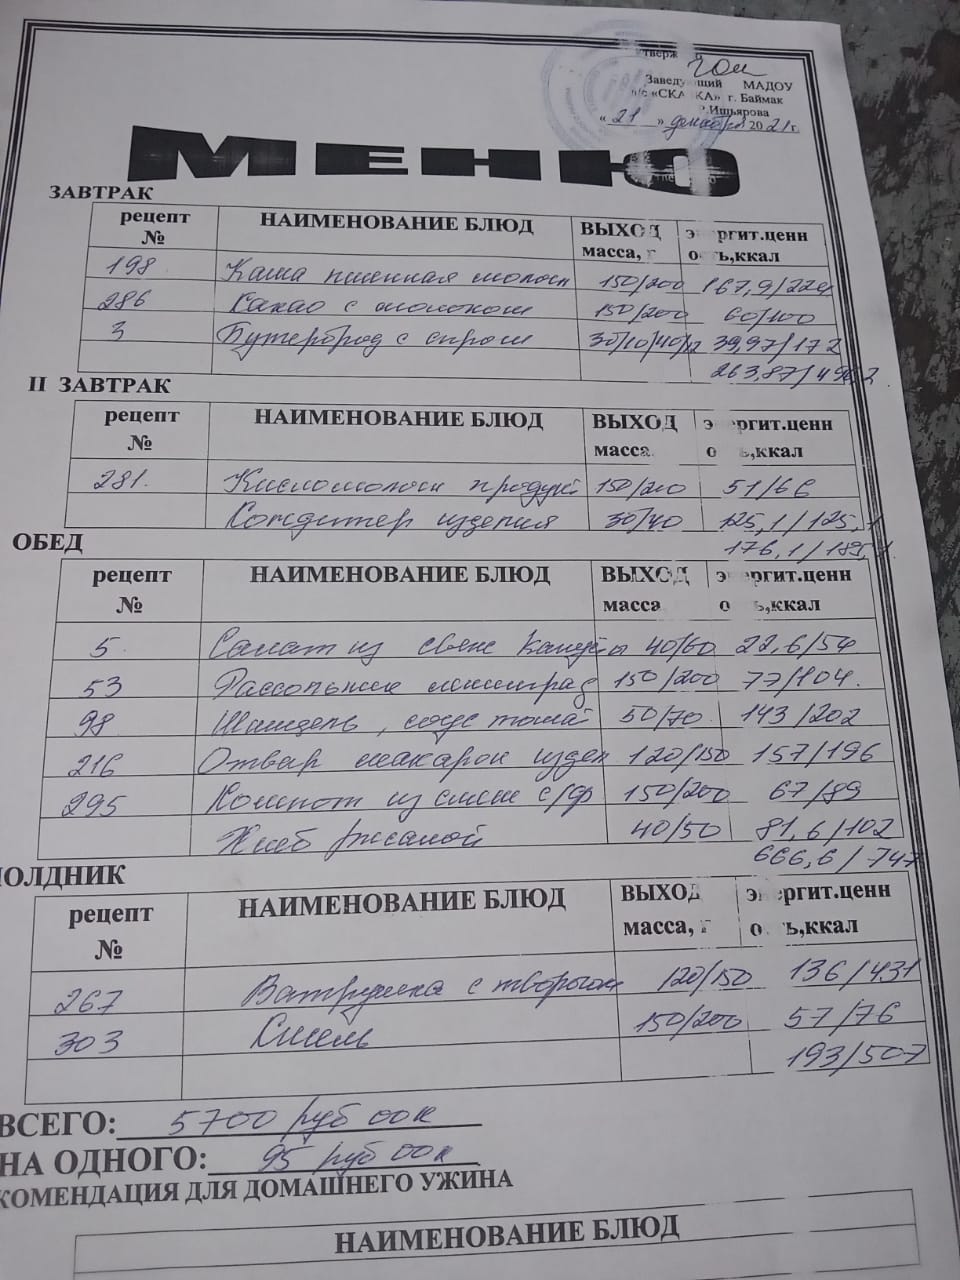 Заведующий МАДОУ
г. Баймак
Р.Ишьярова
« 21 » декабря 2021 г.
МЕНЮ
ЗАВТРАК
рецепт № НАИМЕНОВАНИЕ БЛЮД ВЫХОД масса, г энергит.ценность,ккал
198 Каша пшенная молочн 150/200 167,9/224
286 Какао с молоком 150/200 60/100
3 Бутерброд с сыром 30/10/40/12 39,97/172
II ЗАВТРАК
рецепт № НАИМЕНОВАНИЕ БЛЮД ВЫХОД масса энергит.ценность,ккал
281. Кисломолочн продукт 150/200 51/66
Кондитер изделия 30/40 125,1/125,1
ОБЕД
рецепт № НАИМЕНОВАНИЕ БЛЮД ВЫХОД масса энергит.ценность,ккал
5. Салат из свеж капусты 40/60 22,6/54
53 Рассольник ленинград 150/200 77/104.
98 Шницель, соус томат 50/70 143/202
216 Отвар макарон издел 120/150 157/196
295 Компот из смеси с/ф 150/200 67/89
Хлеб ржаной 40/50 81,6/102
666,6/747
ПОЛДНИК
рецепт № НАИМЕНОВАНИЕ БЛЮД ВЫХОД масса, г энергит.ценность,ккал
267 Ватрушка с творогом 120/150 136/431
303 Кисель 150/200 57/76
193/507
ВСЕГО: 5700 руб 00 к
НА ОДНОГО: 95 руб 00 к
КОМЕНДАЦИЯ ДЛЯ ДОМАШНЕГО УЖИНА
НАИМЕНОВАНИЕ БЛЮД